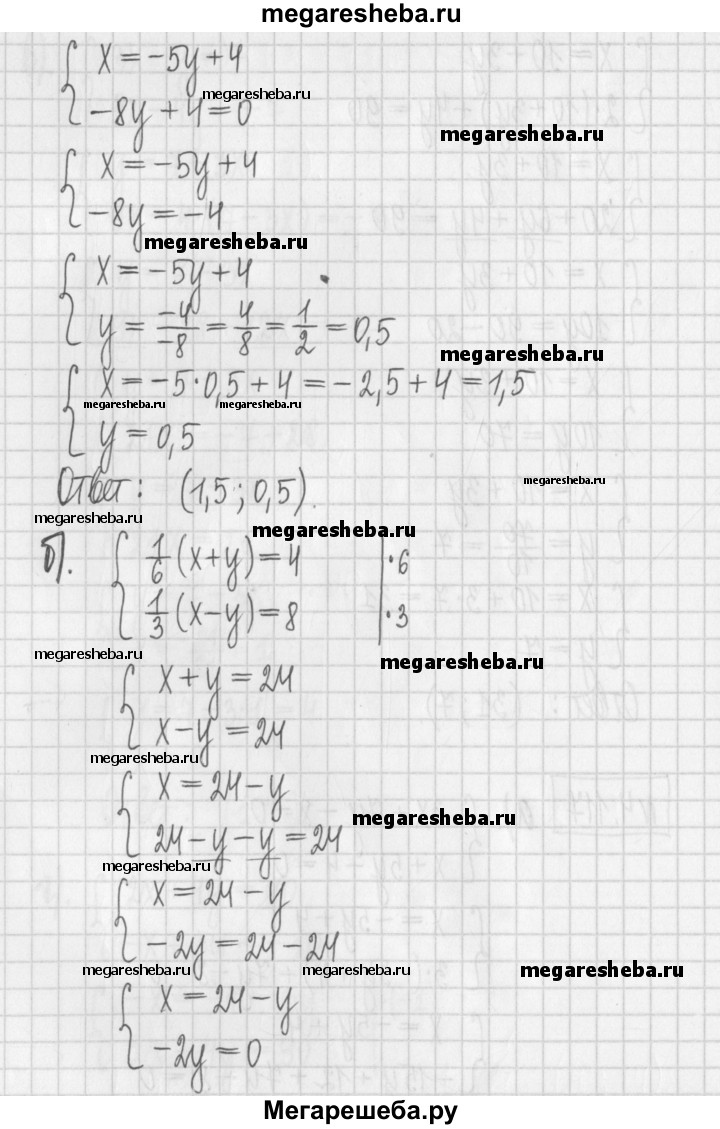 megaresheba.ru
x = -5y + 4
megaresheba.ru
-8y + 4 = 0
megaresheba.ru
x = -5y + 4
-8y = -4
megaresheba.ru
x = -5y + 4
y = -4/-8 = 4/8 = 1/2 = 0,5
megaresheba.ru
x = -5·0,5 + 4 = -2,5 + 4 = 1,5
megaresheba.ru megaresheba.ru
y = 0,5
Ответ: (1,5; 0,5).
megaresheba.ru
megaresheba.ru
megaresheba.ru
б). 1/6 (x+y) = 4 | ·6
1/3 (x-y) = 8 | ·3
megaresheba.ru
megaresheba.ru
x + y = 24
x - y = 24
megaresheba.ru
x = 24 - y
megaresheba.ru
24 - y - y = 24
megaresheba.ru
x = 24 - y
-2y = 24 - 24
megaresheba.ru megaresheba.ru megaresheba.ru
x = 24 - y
-2y = 0
Мегарешеба.ру